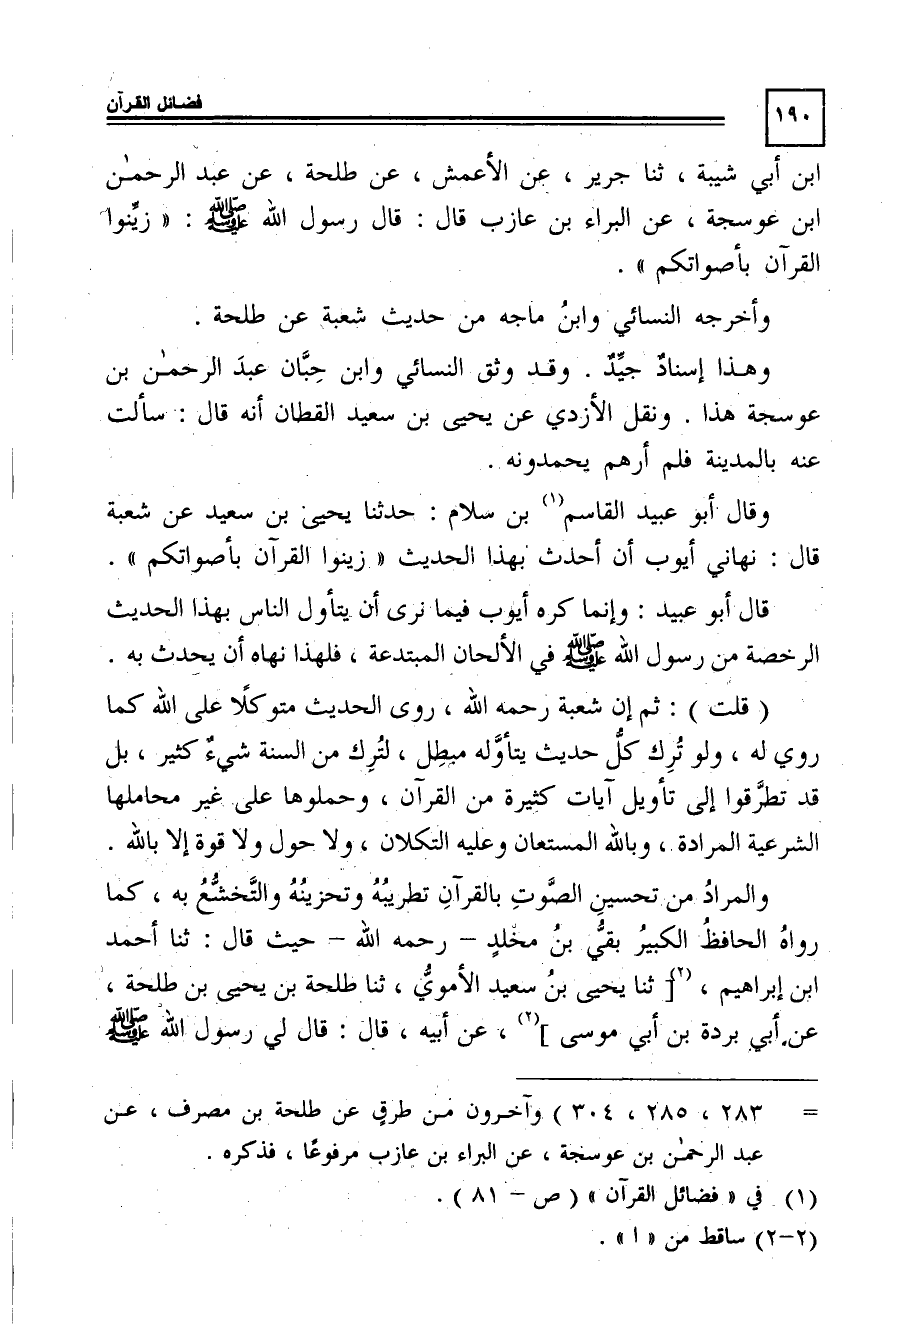 فضائل القرآن
١٩٠
ابن أبي شيبة ، ثنا جرير ، عن الأعمش ، عن طلحة ، عن عبد الرحمٰن
ابن عوسجة ، عن البراء بن عازب قال : قال رسول الله ﷺ : « زيِّنوا
القرآن بأصواتكم » .
وأخرجه النسائي وابنُ ماجه من حديث شعبة عن طلحة .
وهـذا إسنادٌ جيِّدٌ . وقـد وثق النسائي وابن حِبَّان عبدَ الرحمٰن بن
عوسجة هذا . ونقل الأزدي عن يحيى بن سعيد القطان أنه قال : سألت
عنه بالمدينة فلم أرهم يحمدونه .
وقال أبو عبيد القاسم(١) بن سلام : حدثنا يحيى بن سعيد عن شعبة
قال : نهاني أيوب أن أحدث بهذا الحديث « زينوا القرآن بأصواتكم » .
قال أبو عبيد : وإنما كره أيوب فيما نرى أن يتأول الناس بهذا الحديث
الرخصة من رسول الله ﷺ في الألحان المبتدعة ، فلهذا نهاه أن يحدث به .
( قلت ) : ثم إن شعبة رحمه الله ، روى الحديث متوكلًا على الله كما
روي له ، ولو تُرِك كلُّ حديث يتأوَّله مبطِل ، لتُرِك من السنة شيءٌ كثير ، بل
قد تطرَّقوا إلى تأويل آيات كثيرة من القرآن ، وحملوها على غير محاملها
الشرعية المرادة ، وبالله المستعان وعليه التكلان ، ولا حول ولا قوة إلا بالله .
والمرادُ من تحسينِ الصَّوتِ بالقرآنِ تطريبُهُ وتحزينُهُ والتَّخشُّعُ به ، كما
رواهُ الحافظُ الكبيرُ بقيُّ بنُ مخْلدٍ – رحمه الله – حيث قال : ثنا أحمد
ابن إبراهيم ، (٢)[ ثنا يحيى بنُ سعيد الأمويُّ ، ثنا طلحة بن يحيى بن طلحة ،
عن أبي بردة بن أبي موسى ](٢) ، عن أبيه ، قال : قال لي رسول الله ﷺ
= ٢٨٣ ، ٢٨٥ ، ٣٠٤ ) وآخرون من طرقٍ عن طلحة بن مصرف ، عـن
عبد الرحمٰن بن عوسجة ، عن البراء بن عازب مرفوعًا ، فذكره .
(١) في « فضائل القرآن » ( ص – ٨١ ) .
(٢–٢) ساقط من « ا » .